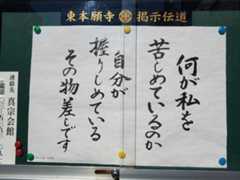 東本願寺 掲示伝道
何が私を
苦しめているのか
自分が
握りしめている
その物差しです
連絡先 真宗会館